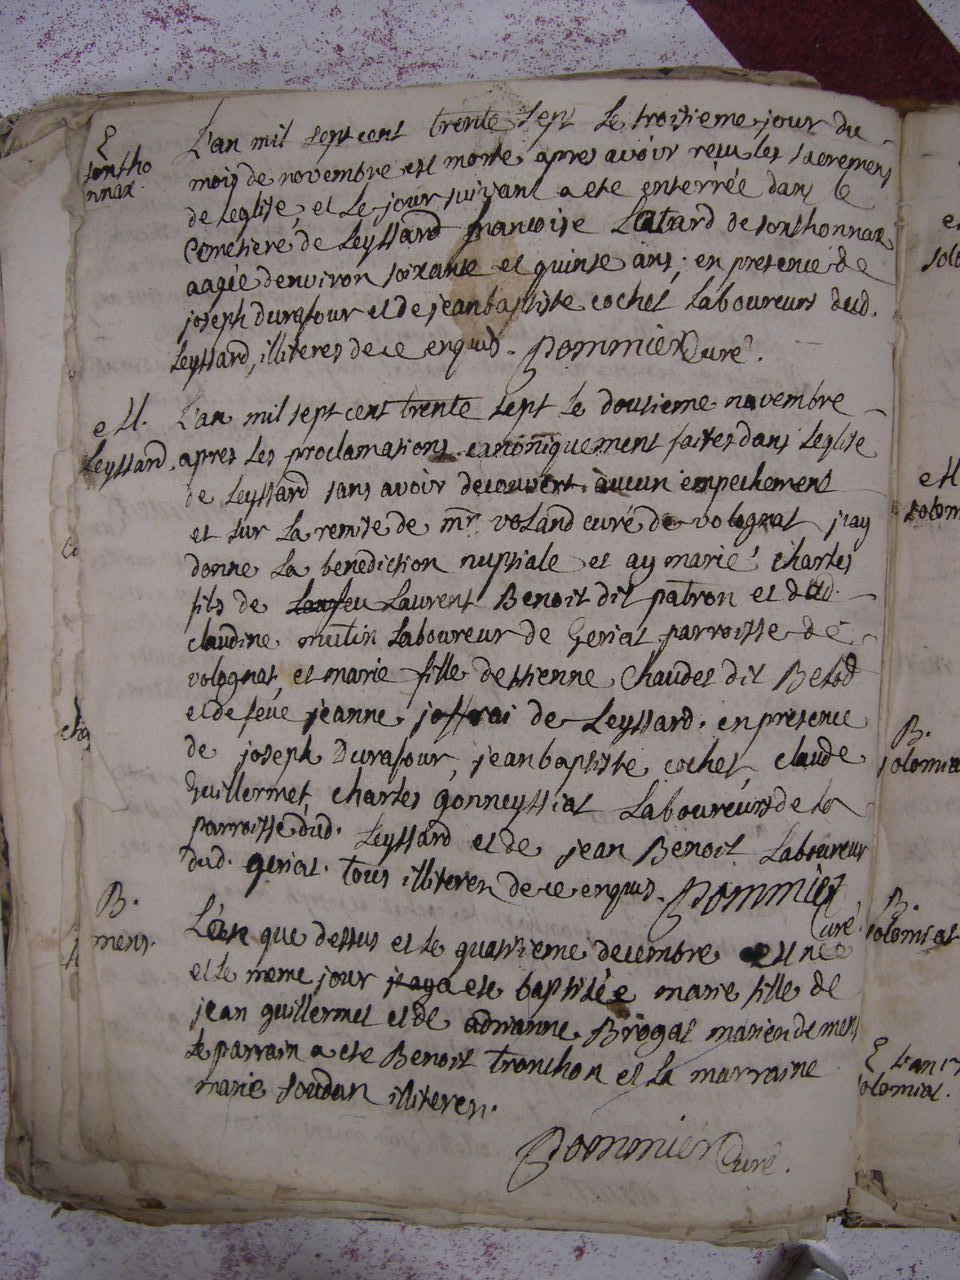 E
sontho
nnax.
L'an mil sept cent trente sept le troisieme jour du
mois de novembre est morte apres avoir reçu les sacremens
de Leglise, et le jour suivant a ete enterrée dans le
cemetiere de Leyssard francoise Latard de sonthonnax
aagée denviron soixante et quinse ans; en presence de
joseph Durafour et de jean baptiste cochet Laboureurs dud.
Leyssard, illiteres de ce enquis. Pommier Curé.
e M.
Leyssard.
L'an mil sept cent trente sept le dousieme novembre
apres les proclamations canoniquement faites dans Leglise
de Leyssard sans avoir decouvert aucun empechement
et sur la remise de mr. voland curé de volognat j'ay
donne la benediction nuptiale et ay marié charles
fils de feu Laurent Benoit dit patron et de
claudine mutin Laboureur de Geriat parroisse de
volognat, et marie fille destienne Chaudet dit Belod
et de feue jeanne joffrai de Leyssard. en presence
de joseph Durafour, jean baptiste cochet, claude
Guillermet, charles gonneyssiat Laboureurs de la
parroisse dud. Leyssard et de jean Benoit Laboureur
dud. geriat. tous illiteres de ce enquis. Pommier
Curé.
B.
mens.
L'an que dessus et le quatrieme decembre est née
et le meme jour a ete baptisée marie fille de
jean guillermet et de adrianne Brogat mariens de mens
Le parrain a ete Benoit tronchon et la marraine
marie soudan illiteres.
Pommier Curé.
e M
B.
solomia
B.
solomiat
E
L'an
solomiat.